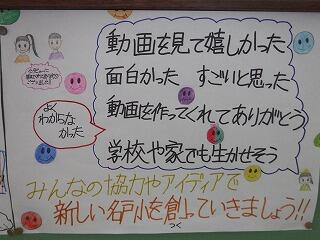 動画を見て嬉しかった
面白かった すごいと思った
動画を作ってくれてありがとう
学校や家でも生かせそう
よく
わからな
かった
みんなの協力やアイディアで
新しい名戸小を創っていきましょう!!
つく